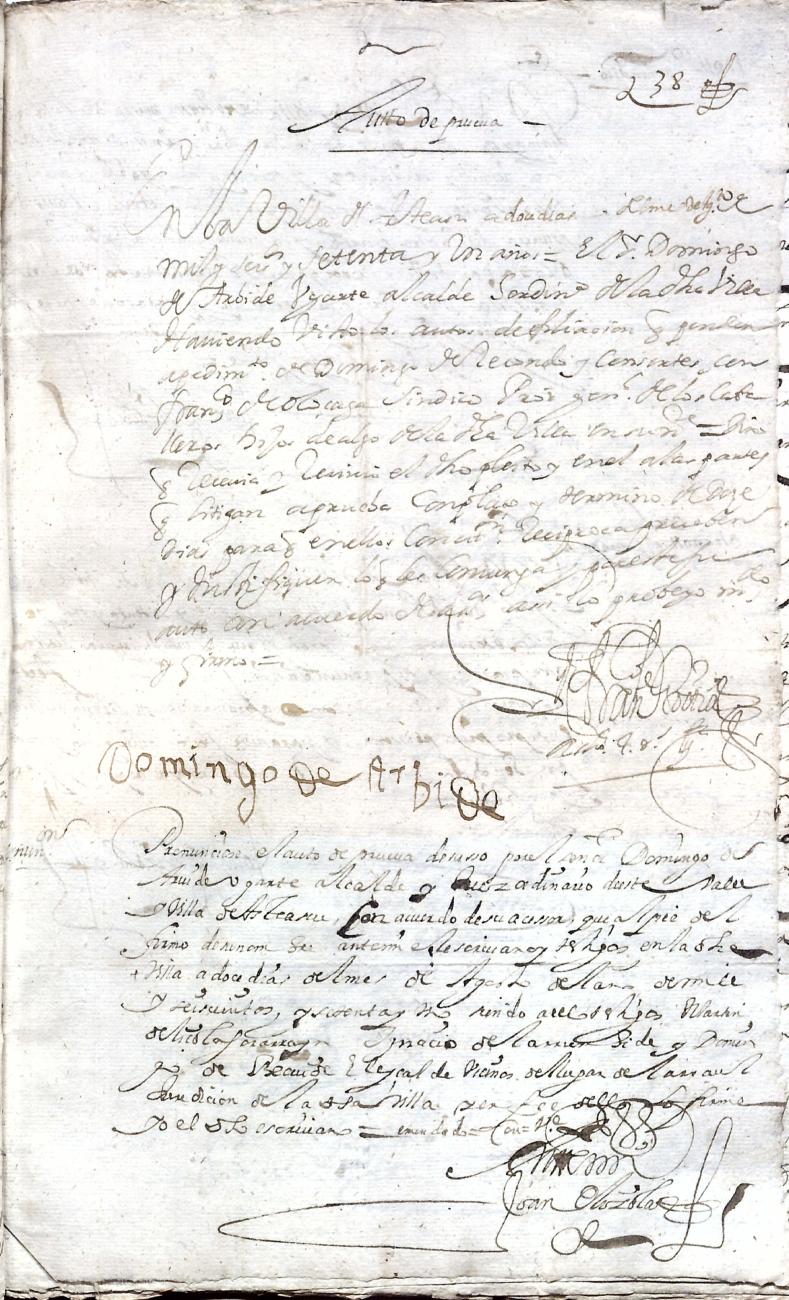 238
Auto de prueva
En la Villa de Asteasu a doce dias del mes de Ag.to de
mil y seis y setenta y un años = El Sr. Domingo
de Arbide Ygarte alcalde hordin.o de la dha Villa
Haviendo Visto los autos de filiacion q penden
a pedim.to de Domingo de Recondo y Consortes con
fran.co de Oloçaga Sindico Pror gen.l de los Cava
lleros hijos dealgo de la dha Villa en su n.e = Dixo
q Recevia y Recivio el dho pleito y en el a las partes
q litigan a prueba Con plaço y termino de doze
dias para q en ellos Con citn. Reciproca prueben
y Justifiquen lo q les Combenga y por este su
auto con acuerdo de asi lo probeyo m.do
y firmo =
Domingo de Arbide
Pronunciose el auto de prueva desusso por el Sr. Domingo de
Arvide Ygarte alcalde y Juez ordinario deste Valle
y Villa de Asteasu, Con acuerdo de su acessor, que al pie del
firmo de su nom.e ante mi el escrivano y tg.os en la dha
Villa a doce dias del mes de Agosto del año de mill
y seiscientos, y setenta y uno siendo a ello tg.os Martin
de Ignacio de Larrumbide y Domin
go de Recuide Eleyçal de Vecinos del lugar de Larraul
Juridicion de la dha Villa, y en fee dello lo firme
yo el dho escrivano = emendado = Con =
Ante mi
Joan